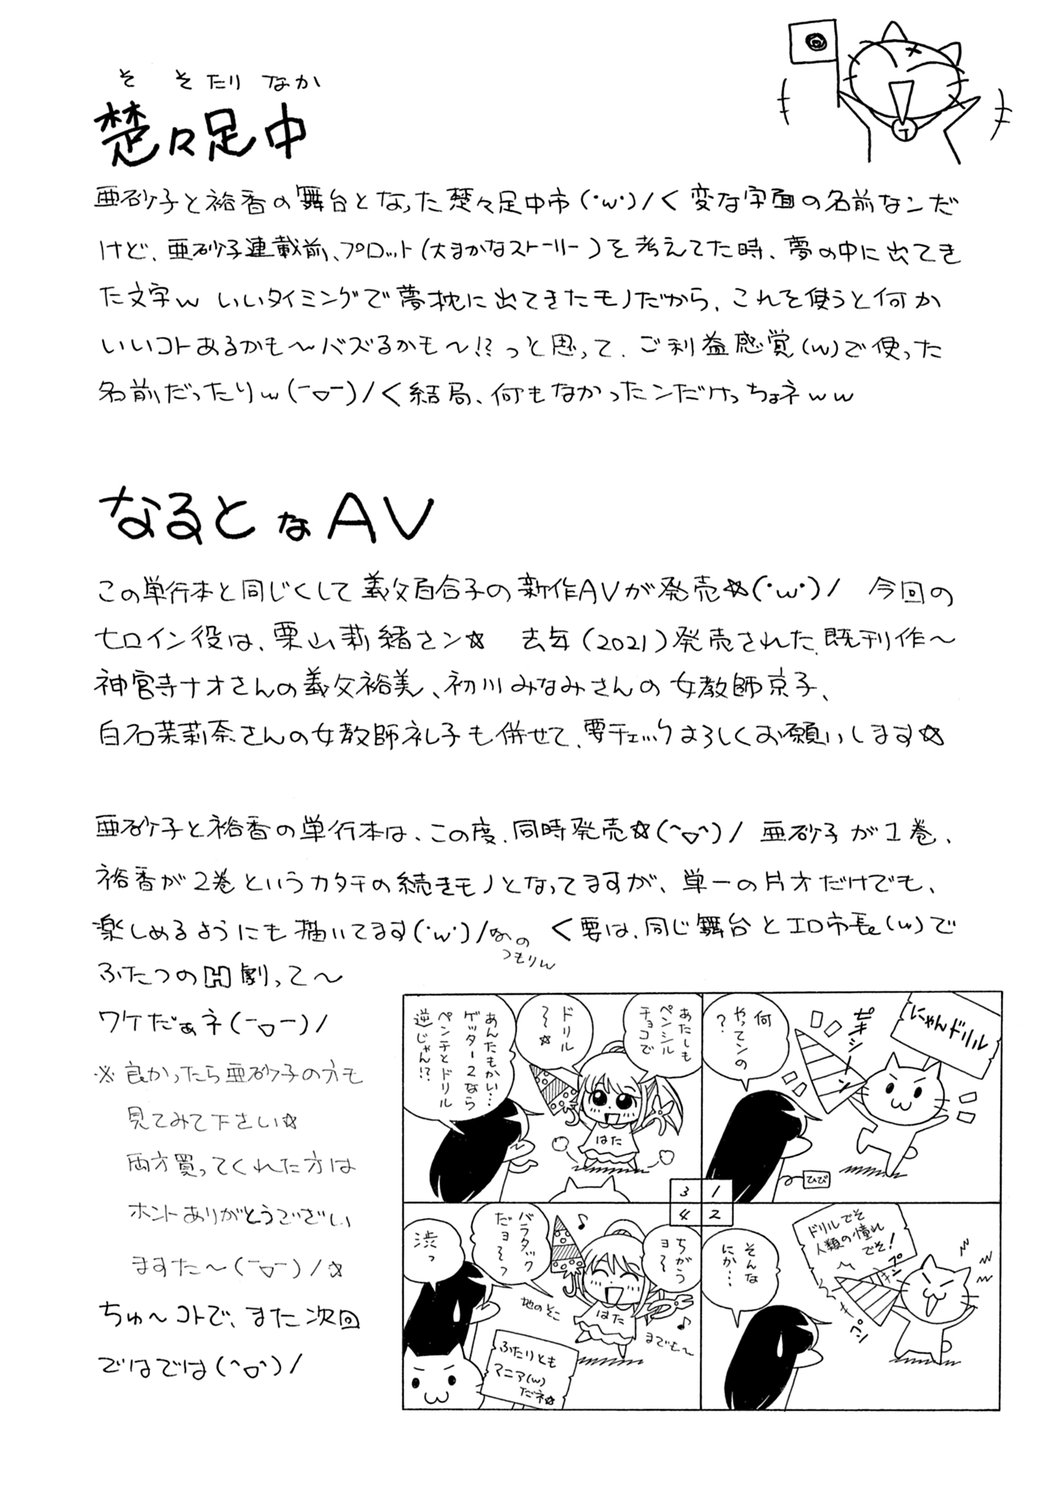 そ そたり なか
楚々足中
亜砂子と裕香の舞台となった楚々足中市(･ω･)/く変な字面の名前なンだ
けど、亜砂子連載前、プロット(大まかなストーリー)を考えてた時、夢の中に出てき
た文字w いいタイミングで夢枕に出てきたモノだから、これを使うと何か
いいコトあるかも〜バズるかも〜!?っと思って、ご利益感覚(w)で使った
名前だったりw(ｰ▽ｰ)/く結局、何もなかったンだけっちょネww
なるとなAV
この単行本と同じくして義父百合子の新作AVが発売☆(･ω･)/ 今回の
ヒロイン役は、栗山莉緒さン☆ 去年(2021)発売された既刊作〜
神宮寺ナオさんの義父裕美、初川みなみさんの女教師京子、
白石茉莉奈さんの女教師礼子も併せて、要チェックよろしくお願いします☆
亜砂子と裕香の単行本は、この度、同時発売☆(^▽^)/ 亜砂子が1巻、
裕香が2巻というカタチの続きモノとなってますが、単一の片オだけでも、
楽しめるようにも描いてます(･ω･)/なの
つもりw
く要は、同じ舞台とエロ市長(w)で
ふたつのH劇って〜
ワケだぁネ(ｰ▽ｰ)/
※良かったら亜砂子の方も
見てみて下さい☆
両方買ってくれた方は
ホントありがとうござい
ますた〜(ｰ▽ｰ)/☆
ちゅ〜コトで、また次回
ではでは(^▽^)/
にゃんドリル
ギュキーン
何
やってンの
?
ひび
1
2
3
4
ドリルでそ
人類の憧れ
でそ!
そんな
にか…
あたしも
ペンシル
チョコで
ドリル
〜〜☆
はた
あんたもかい…
ゲッター2なら
ペンチとドリル
逆じゃん!?
ちがう
ヨ〜〜
バラタック
だョ〜〜っ
はた
地のそこ
までも〜
渋っ
ふたりとも
マニア(w)
だネ☆